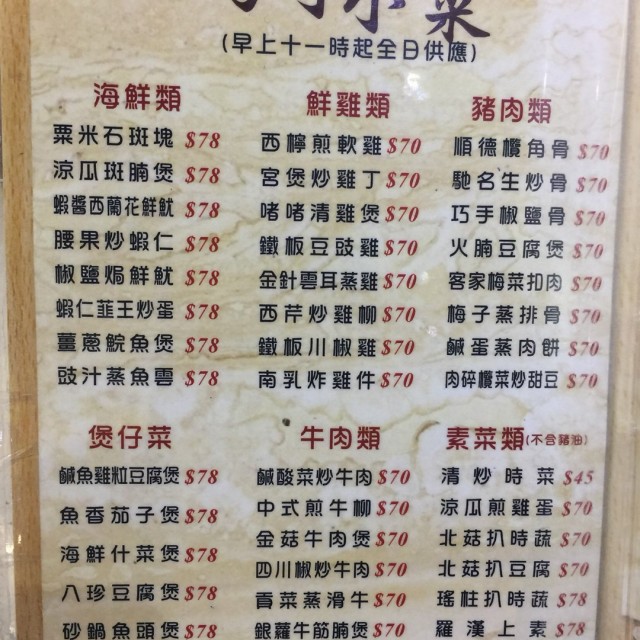 小菜
(早上十一時起全日供應)
海鮮類
粟米石斑塊 $78
涼瓜斑腩煲 $78
蝦醬西蘭花鮮魷 $78
腰果炒蝦仁 $78
椒鹽焗鮮魷 $78
蝦仁韮王炒蛋 $78
薑蔥鯇魚煲 $78
豉汁蒸魚雲 $78
鮮雞類
西檸煎軟雞 $70
宮煲炒雞丁 $70
啫啫清雞煲 $70
鐵板豆豉雞 $70
金針雲耳蒸雞 $70
西芹炒雞柳 $70
鐵板川椒雞 $70
南乳炸雞件 $70
豬肉類
順德欖角骨 $70
馳名生炒骨 $70
巧手椒鹽骨 $70
火腩豆腐煲 $70
客家梅菜扣肉 $70
梅子蒸排骨 $70
鹹蛋蒸肉餅 $70
肉碎欖菜炒甜豆 $70
煲仔菜
鹹魚雞粒豆腐煲 $78
魚香茄子煲 $78
海鮮什菜煲 $78
八珍豆腐煲 $78
砂鍋魚頭煲 $78
牛肉類
鹹酸菜炒牛肉 $70
中式煎牛柳 $70
金菇牛肉煲 $70
四川椒炒牛肉 $70
貢菜蒸滑牛 $70
銀蘿牛筋腩煲 $70
素菜類(不含豬油)
清炒時菜 $45
涼瓜煎雞蛋 $70
北菇扒時蔬 $70
北菇扒豆腐 $70
瑤柱扒時蔬 $78
羅漢上素 $78